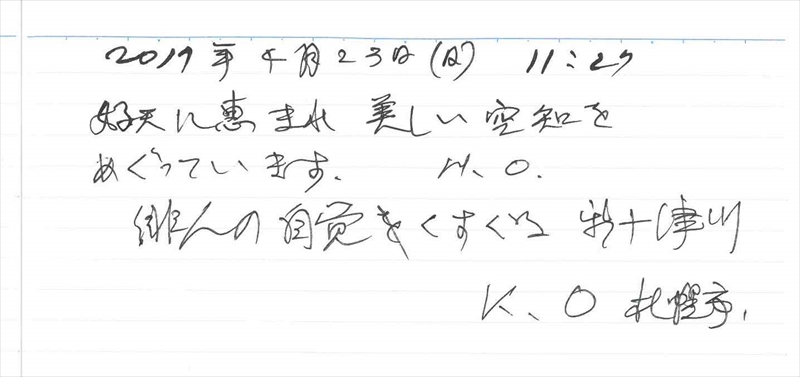 2017年4月23日(日) 11:27
好天に恵まれ 美しい空知を
めぐっています. H、O.
俳人の自覚をくすぐる 新十津川
K、O 札幌市.